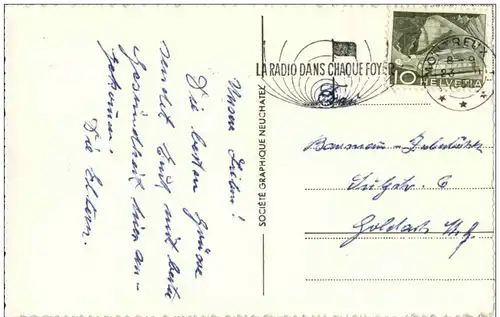 Unsern Lieben!
Die besten Grüsse
sendet Euch mit bester
Gesundheit hier an-
gekommen.
Die Eltern.
SOCIÉTÉ GRAPHIQUE NEUCHATEL
LA RADIO DANS CHAQUE FOYER
MONTREUX
10
HELVETIA
Baumann-
6
Goldach St. G.